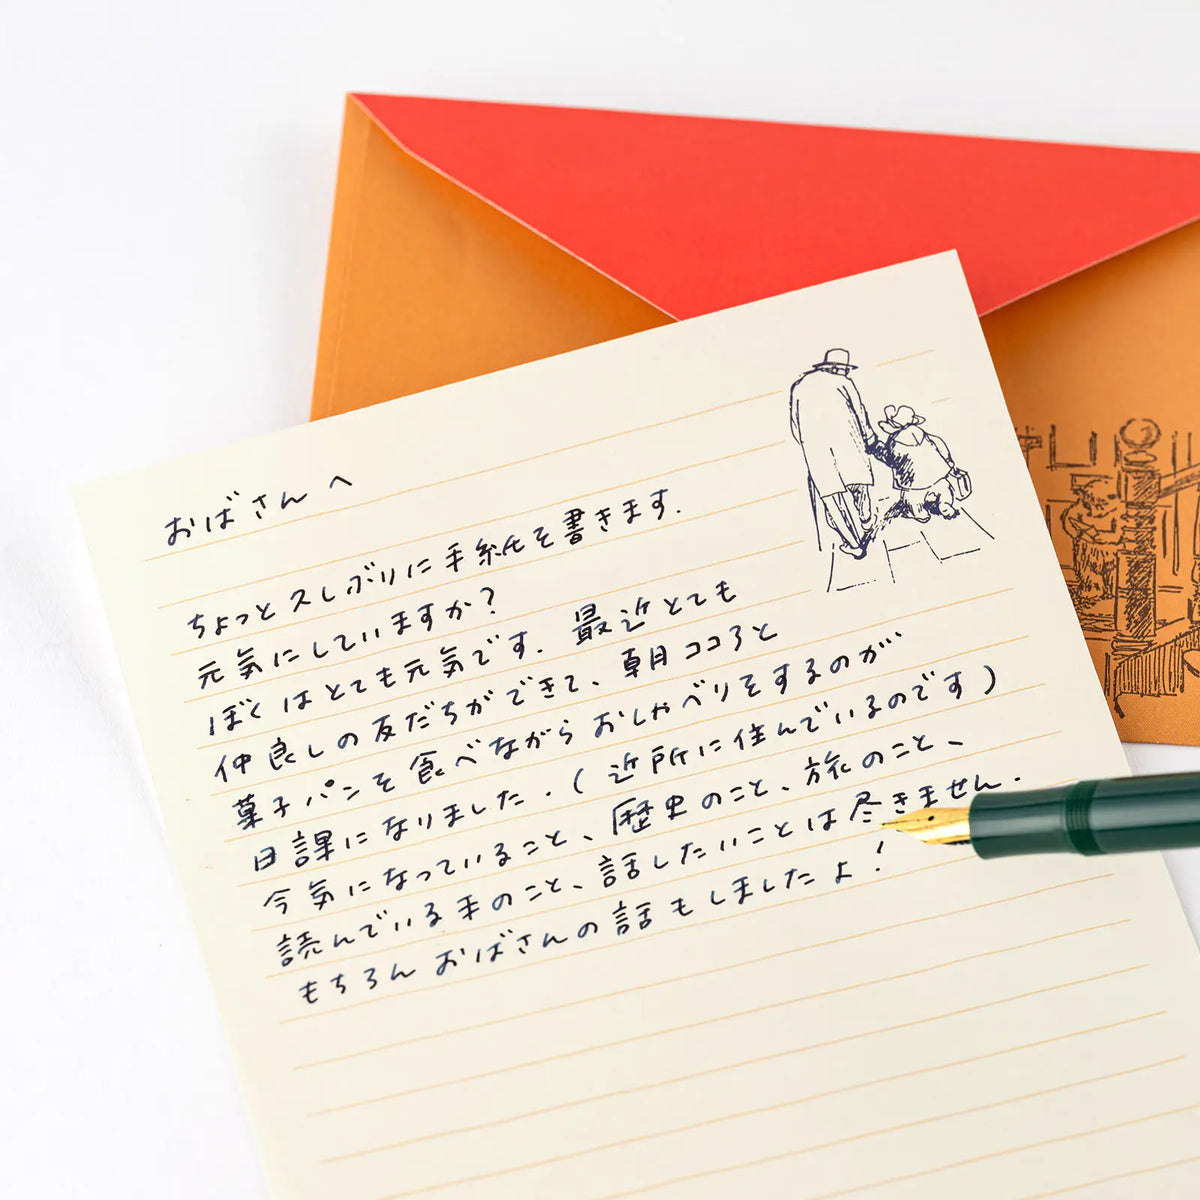 おばさんへ
ちょっと久しぶりに手紙を書きます.
元気にしていますか?
ぼくはとても元気です. 最近とても
仲良しの友だちができて、朝ココアと
菓子パンを食べながらおしゃべりをするのが
日課になりました. (近所に住んでいるのです)
今気になっていること、歴史のこと、旅のこと、
読んでいる本のこと、話したいことは尽きません.
もちろんおばさんの話もしましたよ!